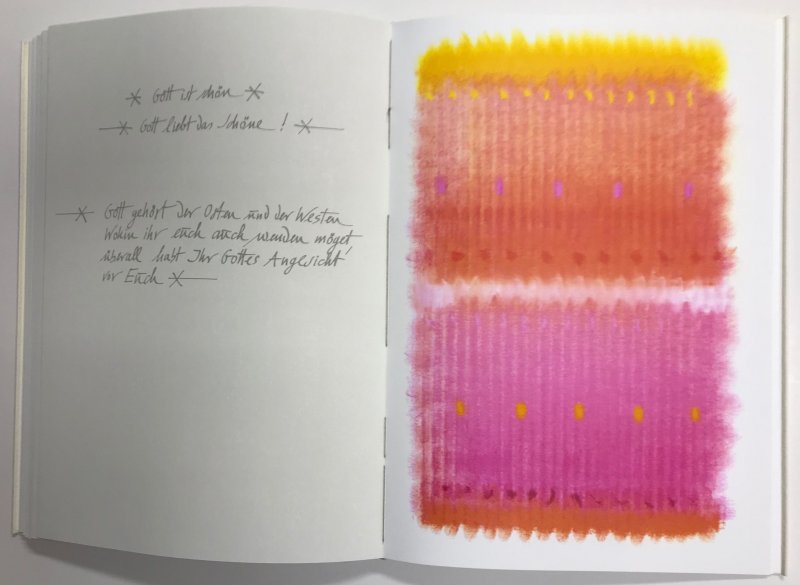 Gott ist schön
Gott liebt das Schöne !
Gott gehört der Osten und der Westen
Wohin ihr euch auch wenden möget
überall habt Ihr Gottes Angesicht
vor Euch